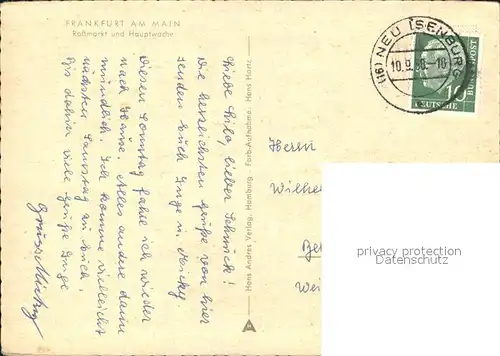 FRANKFURT AM MAIN
Roßmarkt und Hauptwache
Liebe Lilo, lieber Schnuck!
Die herzlichsten Grüße von hier
senden Euch Inge u. Micky.
Diesen Sonntag fahre ich wieder
nach Hause. Alles andere dann
mündlich. Ich komme vielleicht
nächsten Samstag zu Euch,
Bis dahin viele Grüße Inge
Hans Andres Verlag, Hamburg Farb-Aufnahme: Hans Hartz
(16) NEU ISENBURG
10.9.58-18
10
DEUTSCHE
BUNDESPOST
Herrn
Wilhe
Be
We
privacy protection
Datenschutz